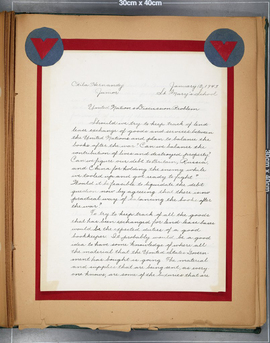 30cm x 40cm
January 8, 1943
Junior St. Mary's School
United Nations Discussion Problem
Should we try to keep track of lend
lease exchange of goods and services between
the United Nations and plan to balance the
books after the war? Can we balance the
contribution of lives and destroyed property?
Can we figure our debt to Britain, Russia,
and China for holding the enemy while
we tooled up and got ready to fight?
Would it be feasible to liquidate the debt
question now by agreeing that there is no
practical way of balancing the books after
the war?
To try to keep track of all the goods
that has been exchanged for lend lease
would be the repeated duties of a good
bookkeeper. It probably would be a good
idea to have some knowledge of where all
the material that the United States Government
has bought is going. The material
and supplies that are being sent, as every
one knows, are some of the finest that are